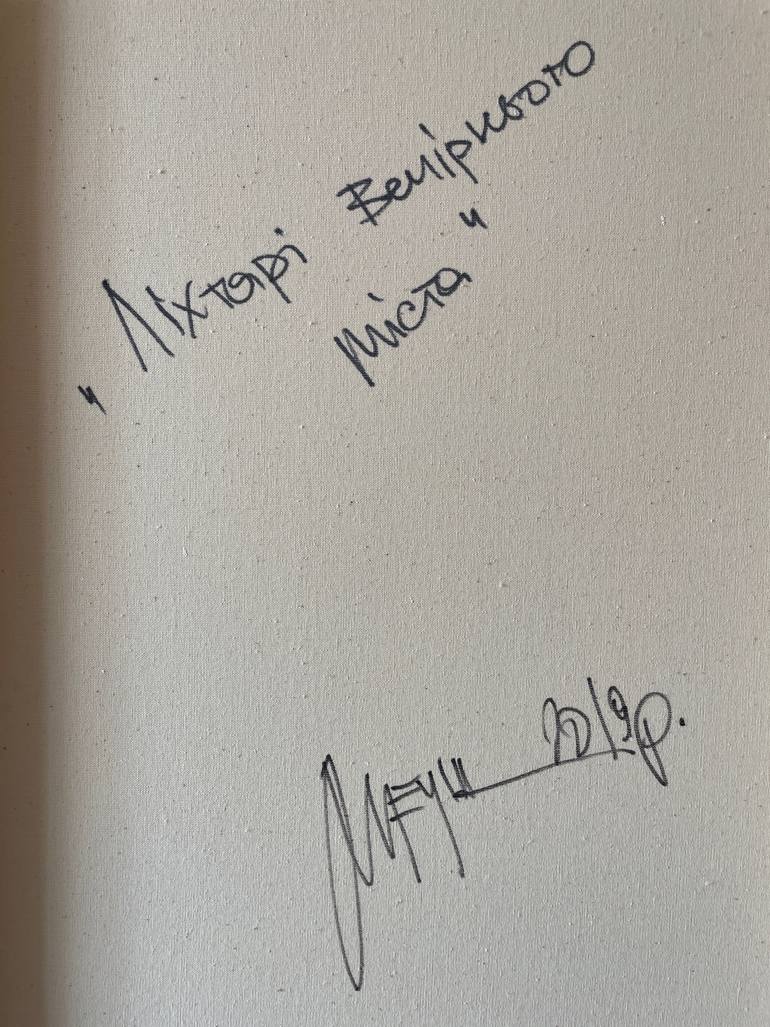 „Ліхтарі Вечірнього
міста"
2019р.